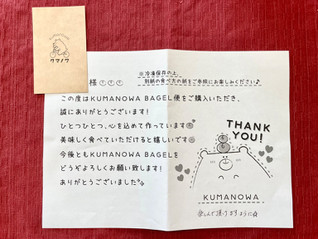 クマノワ
様
※冷凍保存の上、
別紙の食べ方の紙をご参照にお楽しみください♪
この度はKUMANOWA BAGEL便をご購入いただき、
誠にありがとうございます!
ひとつひとつ、心を込めて作っています
美味しく食べていただけると嬉しいです
今後ともKUMANOWA BAGELを
どうぞよろしくお願い致します!
ありがとうございました
THANK
YOU!
KUMANOWA